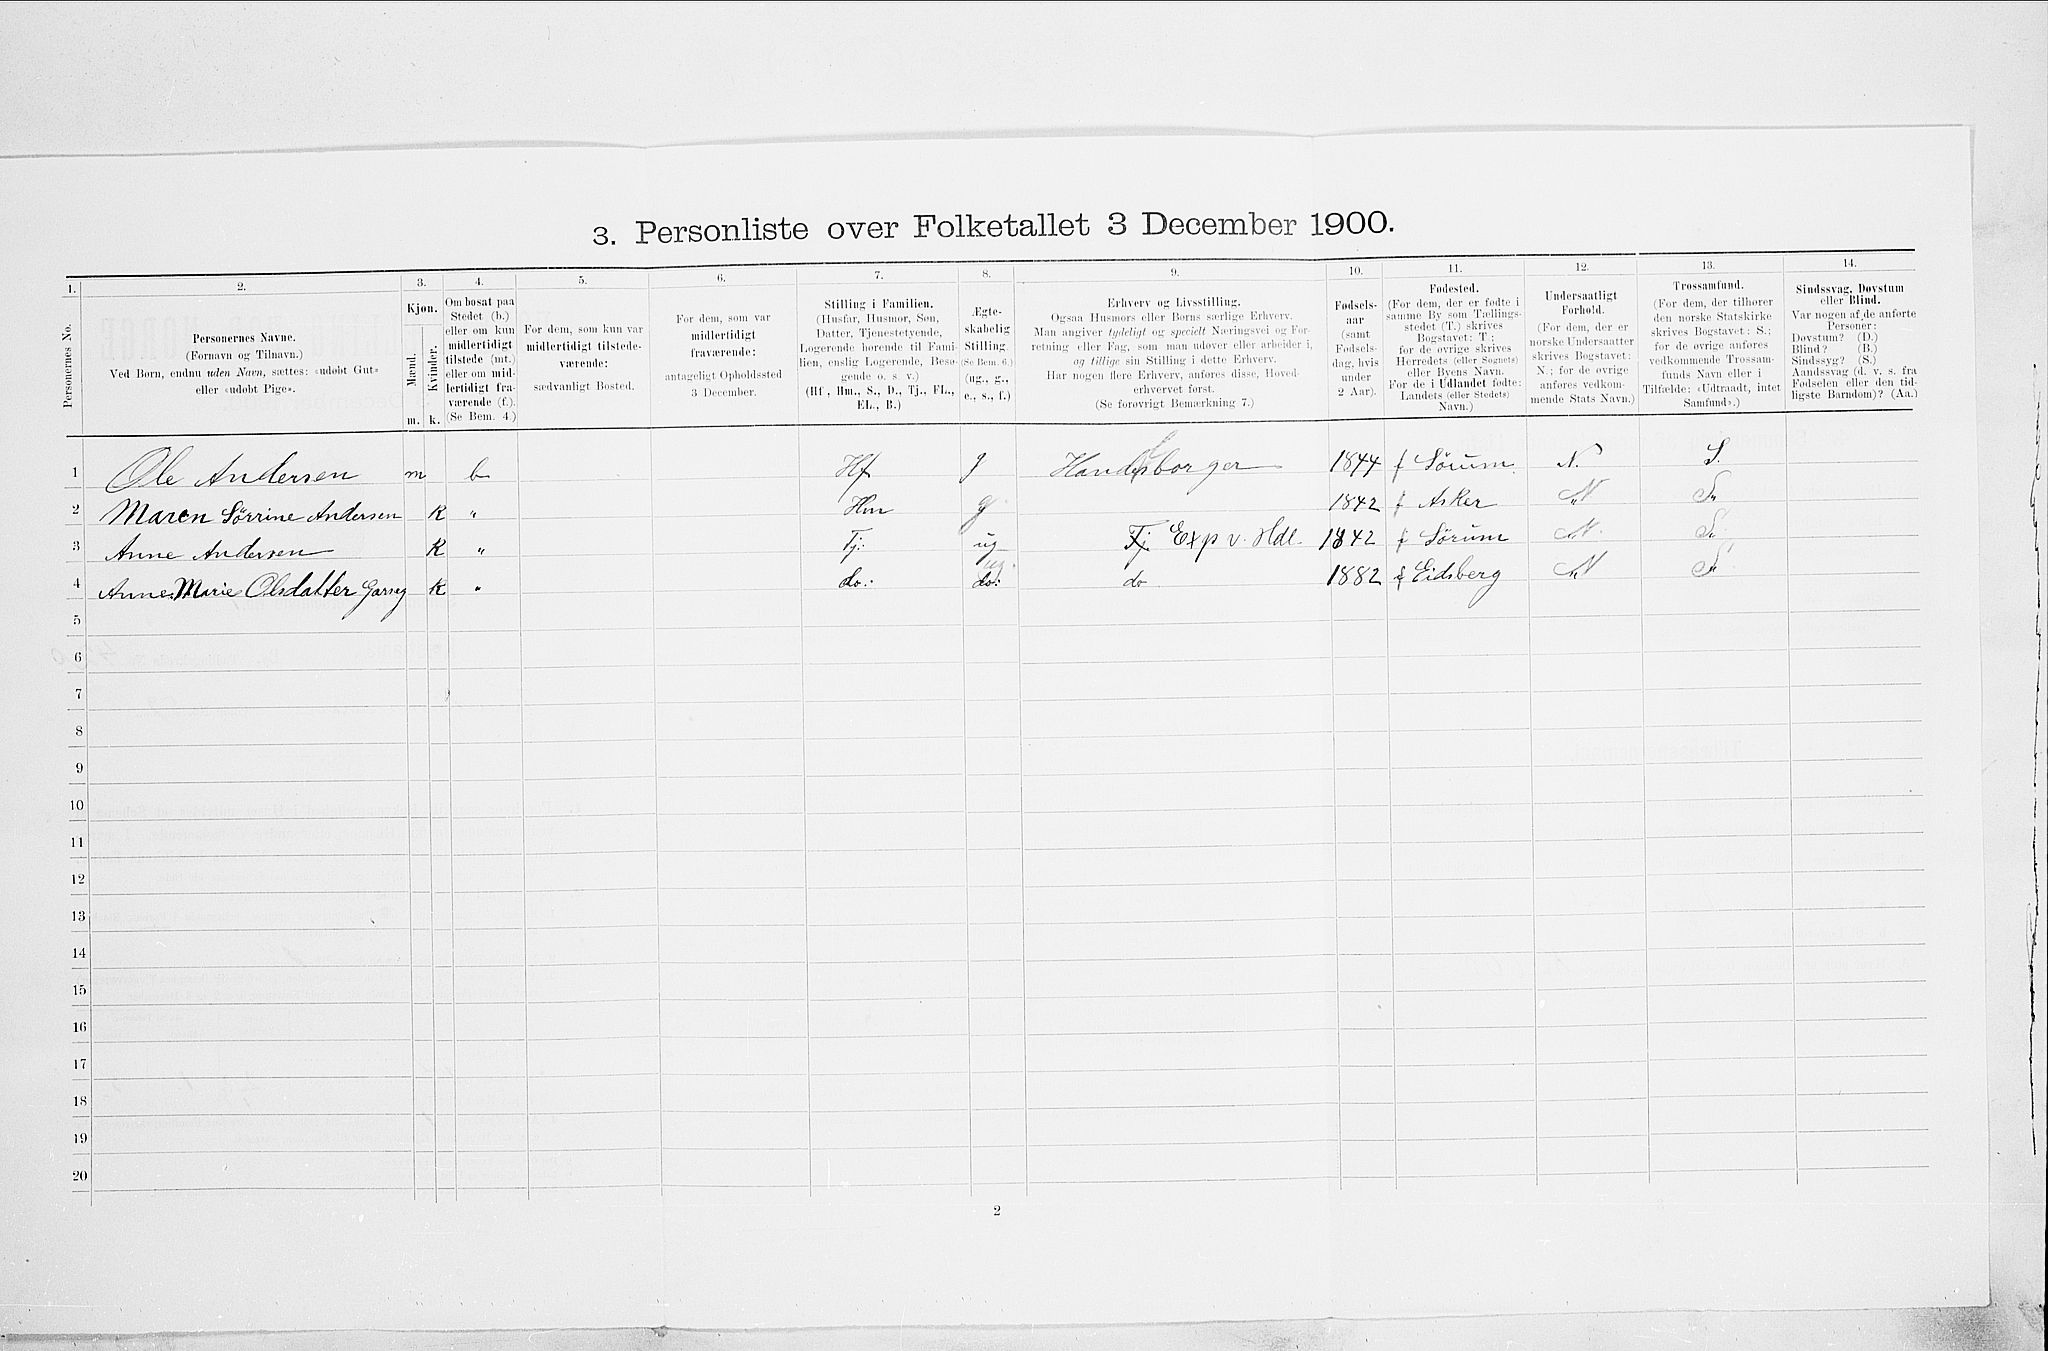 3. Personliste over Folketallet 3 December 1900.
1. 2. 3. 4. 5. 6. 7. 8. 9. 10. 11. 12. 13. 14.
Personernes No.
Personernes Navne.
(Fornavn og Tilnavn.)
Ved Børn, endnu uden Navn, sættes: «udøbt Gut»
eller «udøbt Pige».
Kjøn.
Mænd.
Kvinder.
m. k.
Om bosat paa
Stedet (b.)
eller om kun
midlertidigt
tilstede (mt.)
eller om mid-
lertidigt fra-
værende (f.).
(Se Bem. 4.)
For dem, som kun var
midlertidigt tilstede-
værende:
sædvanligt Bosted.
For dem, som var
midlertidigt
fraværende:
antageligt Opholdssted
3 December.
Stilling i Familien.
(Husfar, Husmor, Søn,
Datter, Tjenestetyende,
Logerende hørende til Fami-
lien, enslig Logerende, Besø-
gende o. s. v.)
(Hf., Hm., S., D., Tj., FL.,
EL., B.)
Ægte-
skabelig
Stilling.
(Se Bem. 6.)
(ug., g.,
e., s., f.)
Erhverv og Livsstilling.
Ogsaa Husmors eller Børns særlige Erhverv.
Man angiver tydeligt og specielt Næringsvei og For-
retning eller Fag, som man udøver eller arbeider i,
og tillige sin Stilling i dette Erhverv.
Har nogen flere Erhverv, anføres disse, Hoved-
erhvervet først.
(Se forøvrigt Bemærkning 7.)
Fødsels-
aar
(samt
Fødsels-
dag, hvis
under
2 Aar).
Fødested.
(For dem, der er fødte i
samme By som Tællings-
stedet (T.) skrives
Bogstavet: T.;
for de øvrige skrives
Herredets (eller Sognets)
eller Byens Navn.
For de i Udlandet fødte:
Landets (eller Stedets)
Navn.)
Undersaatligt
Forhold.
(For dem, der er
norske Undersaatter
skrives Bogstavet:
N.; for de øvrige
anføres vedkom-
mende Stats Navn.)
Trossamfund.
(For dem, der tilhører
den norske Statskirke
skrives Bogstavet: S.;
for de øvrige anføres
vedkommende Trossam-
funds Navn eller i
Tilfælde: «Udtraadt, intet
Samfund».)
Sindssvag, Døvstum
eller Blind.
Var nogen af de anførte
Personer:
Døvstum? (D.)
Blind? (B.)
Sindssyg? (S.)
Aandssvag (d. v. s. fra
Fødselen eller den tid-
ligste Barndom)? (Aa.)
1 Ole Andersen m b Hf g Handelsborger 1844 f Sørum N. S.
2 Maren Sørrine Andersen K " Hm g 1842 f Asker N S
3 Anne Andersen K " Tj. ug Tj. Exp v. Hdl. 1842 f Sørum N. S.
4 Anne Marie Olsdatter K " do: do: ug. do 1882 f Eidsberg N S
5
6
7
8
9
10
11
12
13
14
15
16
17
18
19
20
2